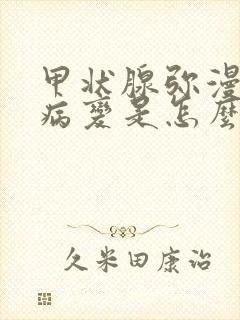 甲状腺弥漫
病变是怎麽
久米田康治